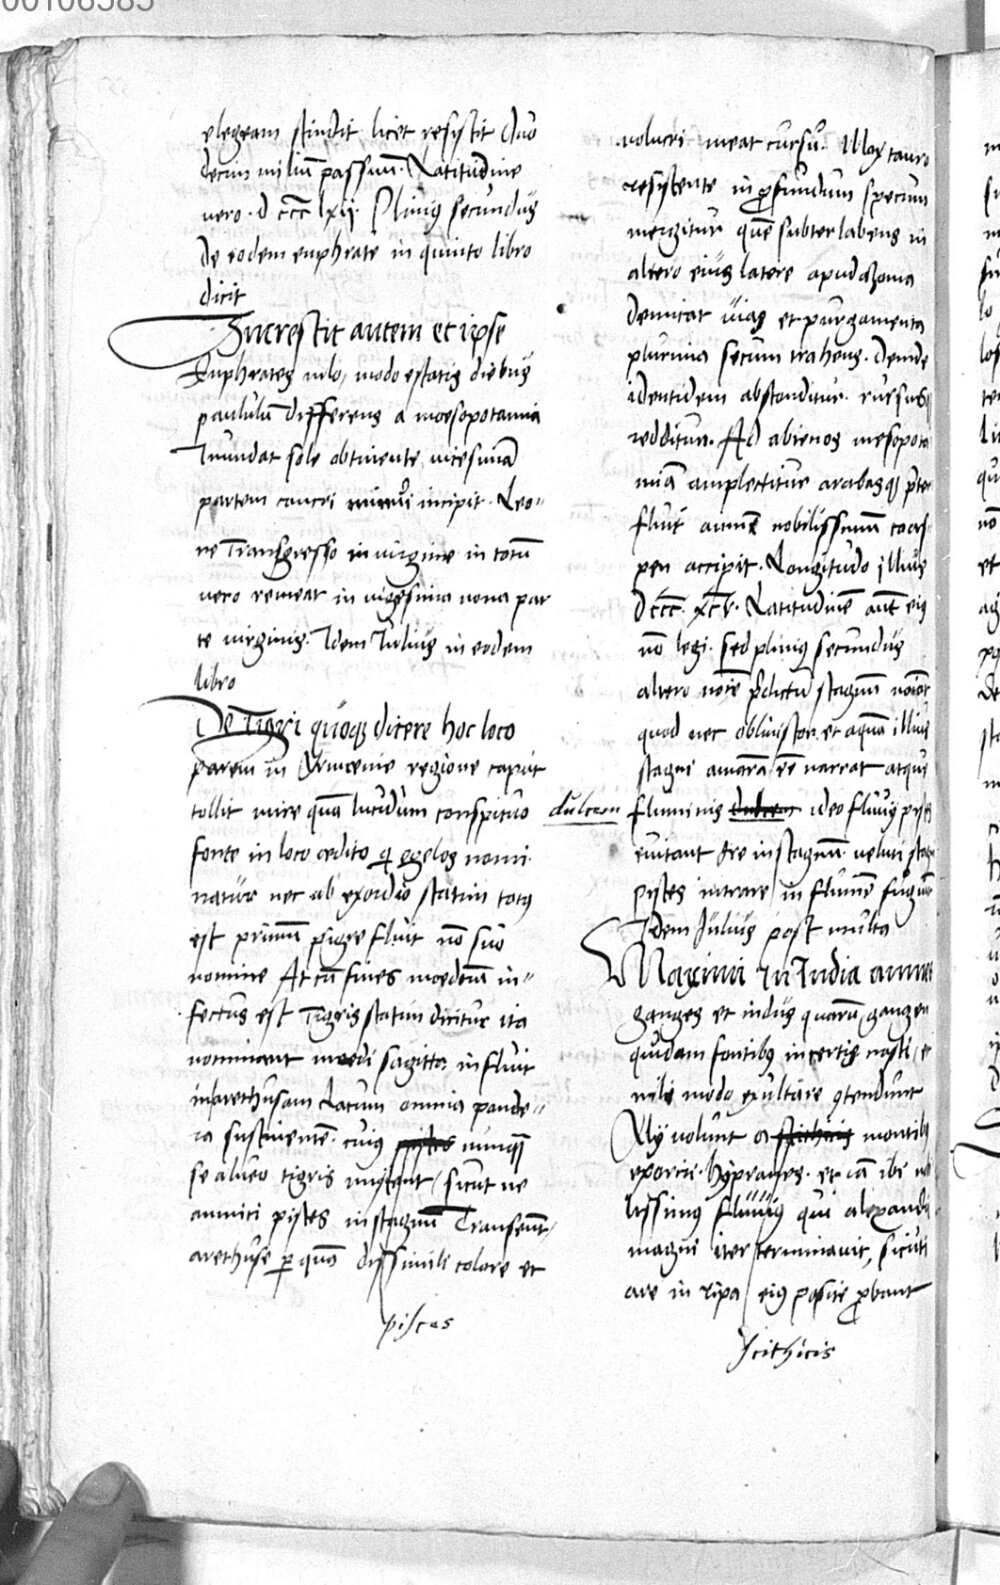 00106385
elegeam scindit licet resistit duo
decim miliū passuum. Latitudine
vero. d cccc lxii. Plinius secundus
de eodem euphrate in quinto libro
dicit
Increscit autem et ipse
Euphrates nilo, modo estatis diebus
paululū differens a moesopotamia
Inundat sole obtinente vicesimā
partem cancri minui incipit. Leo-
ne Transgresso in virgine in totū
vero remeat in vigesima nona par
te virginis. Idem Iulius in eodem
libro
De Tigri quoque dicere hoc loco
parem in Armenie regione caput
tollit mire quā lucidum conspicuo
fonte in loco oedito q̄ egelos nomi
natur nec ab exordio statim totus
est primum pigre fluit nō suo
nomine At cū fines moedorū in-
fectus est Tigris statim dicitur ita
nominant moedi sagittā influit
in arethusam Lacum omnia ponde-
ra sustinentē. cuius nunquā
se alveo tigris miscent, sicut ne
amnici pisces in stagnū Transeunt,
arethuse p̱ quā dissimili colore et
pisces
volucri meat cursu. Mox tauro
resistente in profundum specum
mergitur quē subterlabens in
altero eius latere apud azoma
demicat uias et purgamenta
plurima secum trahens. Deinde
identidem absconditur. rursus
redditur. Ad abienos mesopota
miā amplectitur arabasq̨ preter
fluit amnē nobilissimum coas
pen accipit. Longitudo illius
Dcccc. xcv. Latitudinē aut̄ eius
nō legi. sed plinius secundus
altero noīe p̄dictū stagnum noīat
quod nec obliviscor. et aquā illius
stagni amarā eē narrat atque
dulcem fluminis ideo fluvii pisces
evitant ire in stagnum. veluti stagni
pisces intrare in flumē fugiunt
Idem Iulius post multa
Maximi In India amnes
ganges et indus quarū, gangen
quidam fontibus incertis nasci, et
nili modo exultare contendunt
Alii volunt a montibus
exorire. hypranes. et iā ibi no
lissimus fluvius qui alexandri
magni iter terminavit, sicuti
are in ripa eius posite probant
scithicis